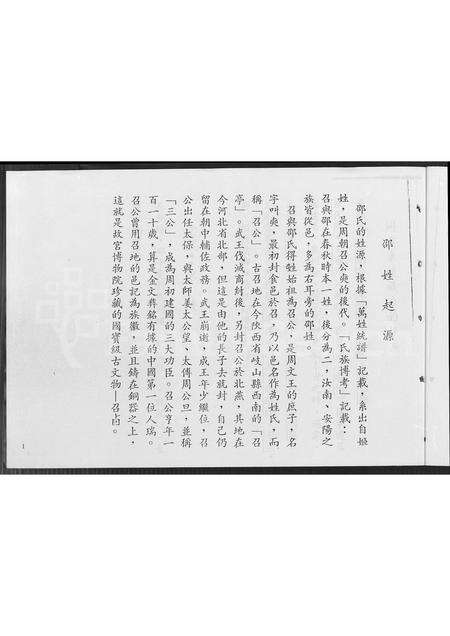 邵姓起源
邵氏的姓源,根據「萬姓統譜」記載,系出自姬
姓,是周朝召公奭的後代。「氏族博考」記載:
召與邵在春秋時本一姓,後分為二,汝南、安陽之
族皆從邑,多為右耳旁的邵姓。
召與邵氏得姓始祖為召公,是周文王的庶子,名
字叫奭,最初封食邑於召,乃以邑名作為姓氏,而
稱「召公」。古召地在今陝西省岐山縣西南的「召
亭」。武王伐滅商紂後,另封召公於北燕,其地在
今河北省北部,但這是由他的長子去就封,自己仍
留在朝中輔佐政務。武王崩逝,成王年少繼位,召
公出任太保,與太師姜太公望、太傅周公旦,並稱
「三公」,成為周初建國的三大功臣。召公享年一
百一十歲,算是金文彝銘有據的中國第一位人瑞。
召公曾用召地的邑記為族徽,並且鑄在銅器之上,
這就是故宮博物院珍藏的國寶級古文物—召卣。
1